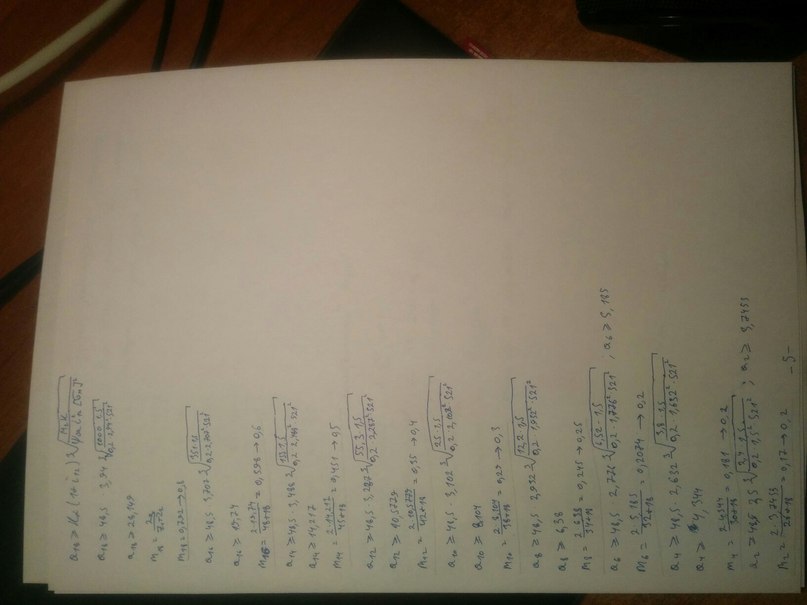 a₁₈ ≥ Kₐ (1+i₁₂) ∛(M₂K / ψₐ i² [σₙ]²)
a₁₈ ≥ 48,5 · 3,94 ∛(100 · 1,5 / 0,2 · 2,94² · 521²)
a₁₈ ≥ 24,149
m₁₈ = 2a / z₁+z₂
m₁₈ = 0,702 → 0,8
a₁₆ ≥ 48,5 · 3,707
a₁₆ ≥ 17,74
m₁₆ = 2 · 17,74 / 48+18 = 0,596 → 0,6
a₁₄ ≥ 48,5 · 3,486
a₁₄ ≥ 14,217
m₁₄ = 2 · 14,217 / 45+18 = 0,451 → 0,5
a₁₂ ≥ 48,5 · 3,287 ∛(55,3 · 1,5 / 0,2 · 2,287² · 521²)
a₁₂ ≥ 10,5729
m₁₂ = 2 · 10,5729 / 42+18 = 0,35 → 0,4
a₁₀ ≥ 48,5 · 3,102 ∛(25 · 1,5 / 0,2 · 2,102² · 521²)
a₁₀ ≥ 8,104
m₁₀ = 2 · 8,104 / 38+18 = 0,29 → 0,3
a₈ ≥ 48,5 · 2,932 ∛(12,2 · 1,5 / 0,2 · 1,932² · 521²)
a₈ ≥ 6,38
m₈ = 2 · 6,38 / 34+18 = 0,245 → 0,25
a₆ ≥ 48,5 · 2,776 ∛(6,52 · 1,5 / 0,2 · 1,776² · 521²) ; a₆ ≥ 5,185
m₆ = 2 · 5,185 / 32+18 = 0,2074 → 0,2
a₄ ≥ 48,5 · 2,632 ∛(3,8 · 1,5 / 0,2 · 1,632² · 521²)
a₄ ≥ 4,344
m₄ = 2 · 4,344 / 30+18 = 0,181 → 0,2
a₂ ≥ 48,5 · 2,5 ∛(2,4 · 1,5 / 0,2 · 1,5² · 521²) ; a₂ ≥ 3,7453
m₂ = 2 · 3,7453 / 26+18 = 0,17 → 0,2
-5-